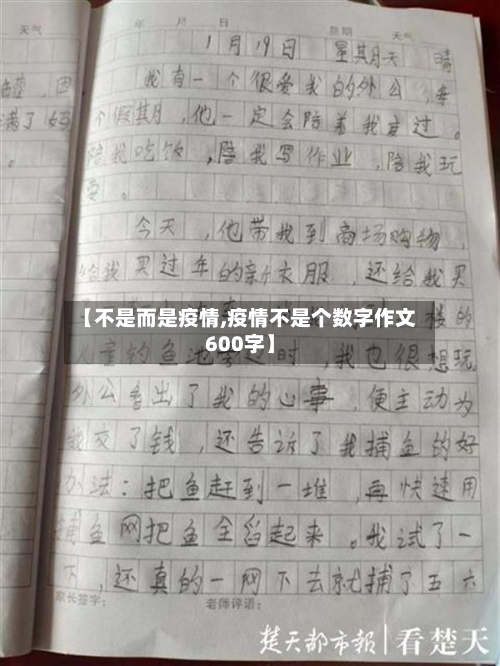 天气
年 月 日 星期 天气
1月19日 星期天 晴
我有一个很爱我的外公,每
个假期,他一定会陪着我度过。
陪我吃饭,陪我写作业,陪我玩
耍。
今天,他带我到商场购物,
给我买过年的新衣服,还给我买
【不是而是疫情,疫情不是个数字作文
600字】
楼的
儿童钓鱼池旁边时,我也很想玩
外公看出了我的心事,便主动为
我交了钱,还告诉了我捕鱼的好
办法:把鱼赶到一堆,再快速用
捕鱼网把鱼全舀起来。我试了一
下,还真的一网下去就捕了五六
家长签字: 老师评语:
楚天都市报 | 看楚天